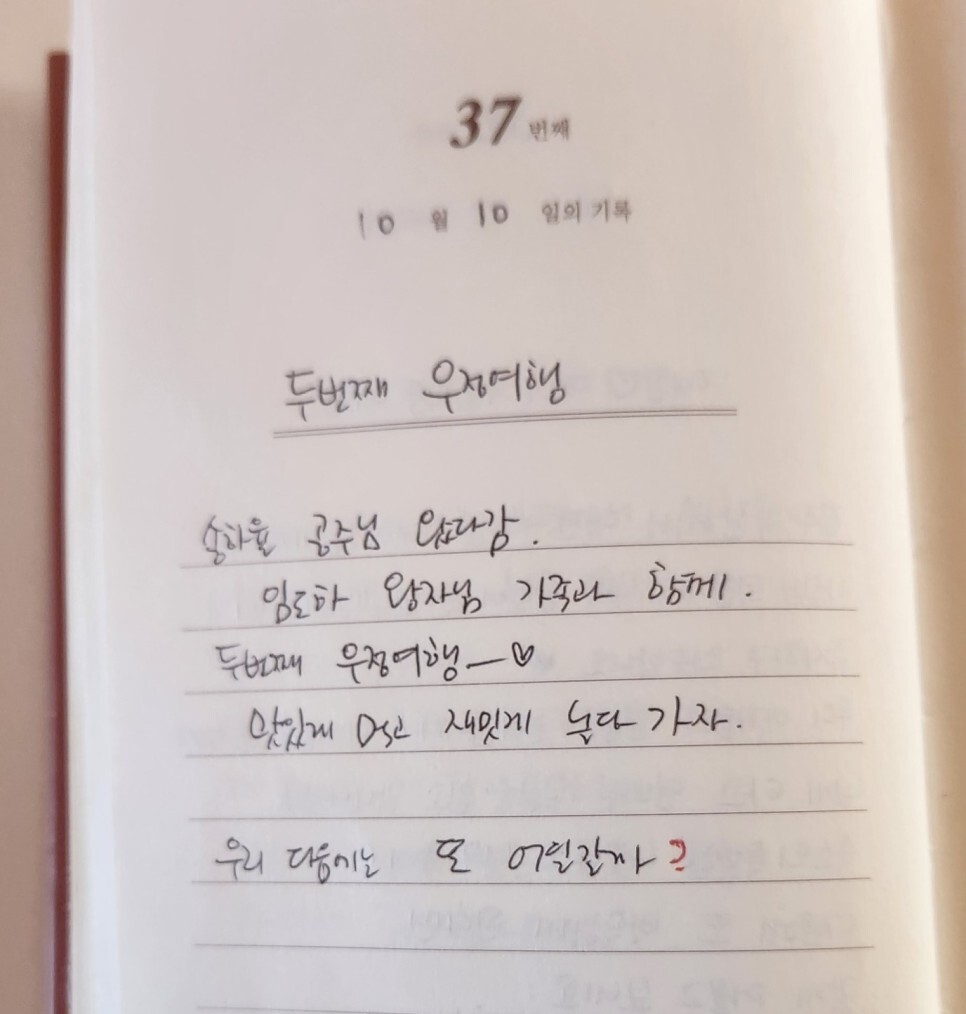 37 번째
10 월 10 일의 기록
두번째 우정여행
송하율 공주님 왔다감.
임도하 왕자님 가족과 함께.
두번째 우정여행—♡
맛있게 먹고 재밌게 놀다 가자.
우리 다음에는 또 어딜갈까?